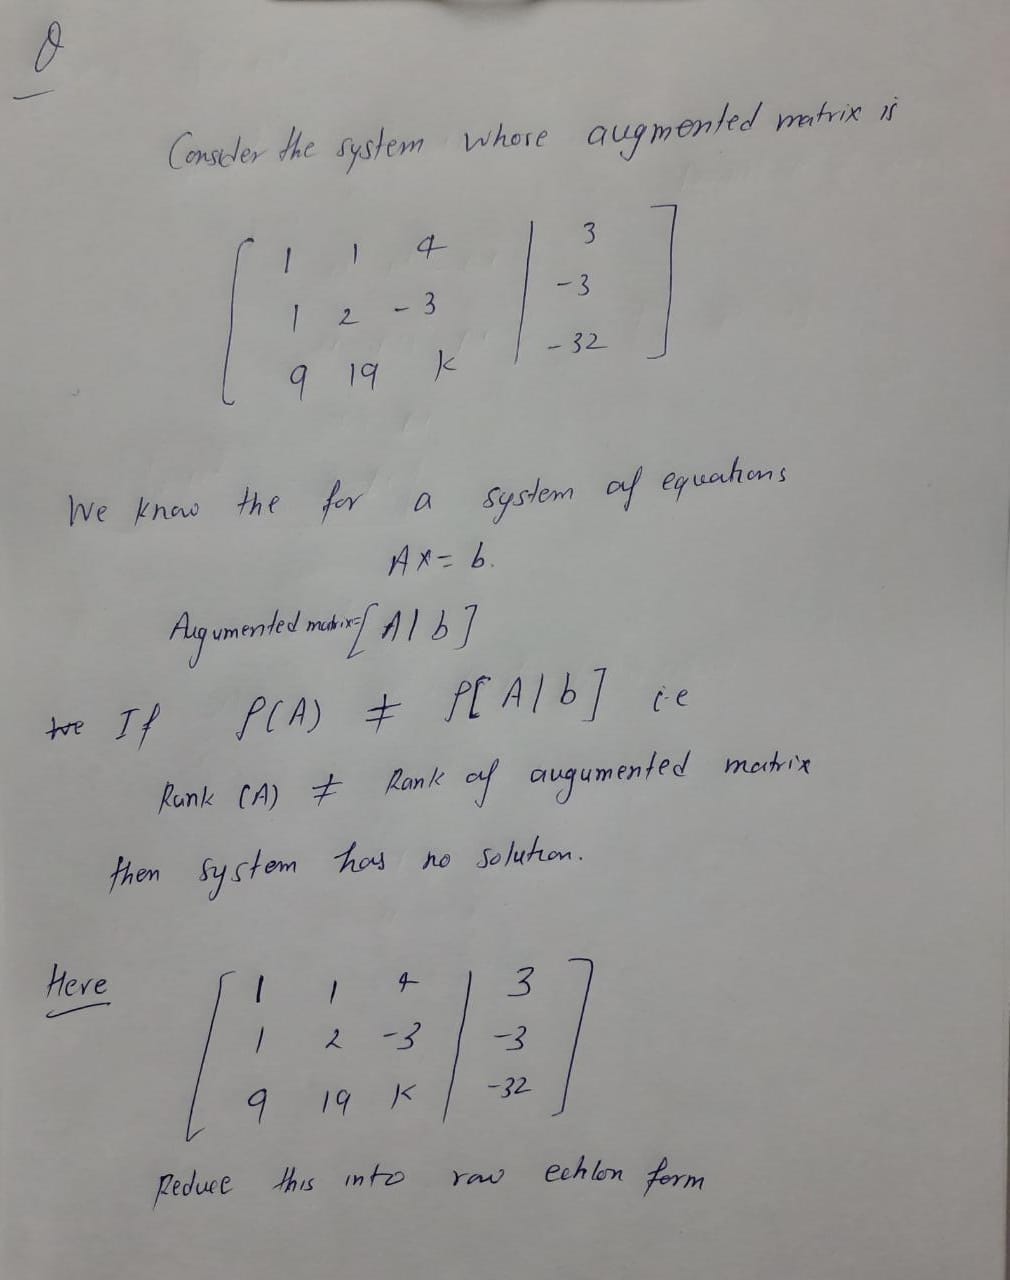 Q
Consider the system whose augmented matrix is
[ 1 1 4 | 3 ]
1 2 -3 | -3
9 19 k | -32
We know the for a system of equations
Ax = b.
Augumented matrix=[A|b]
we If ρ(A) ≠ ρ[A|b] i.e
Rank (A) ≠ Rank of augumented matrix
then system has no solution.
Here [ 1 1 4 | 3 ]
1 2 -3 | -3
9 19 k | -32
Reduce this into row echlon form